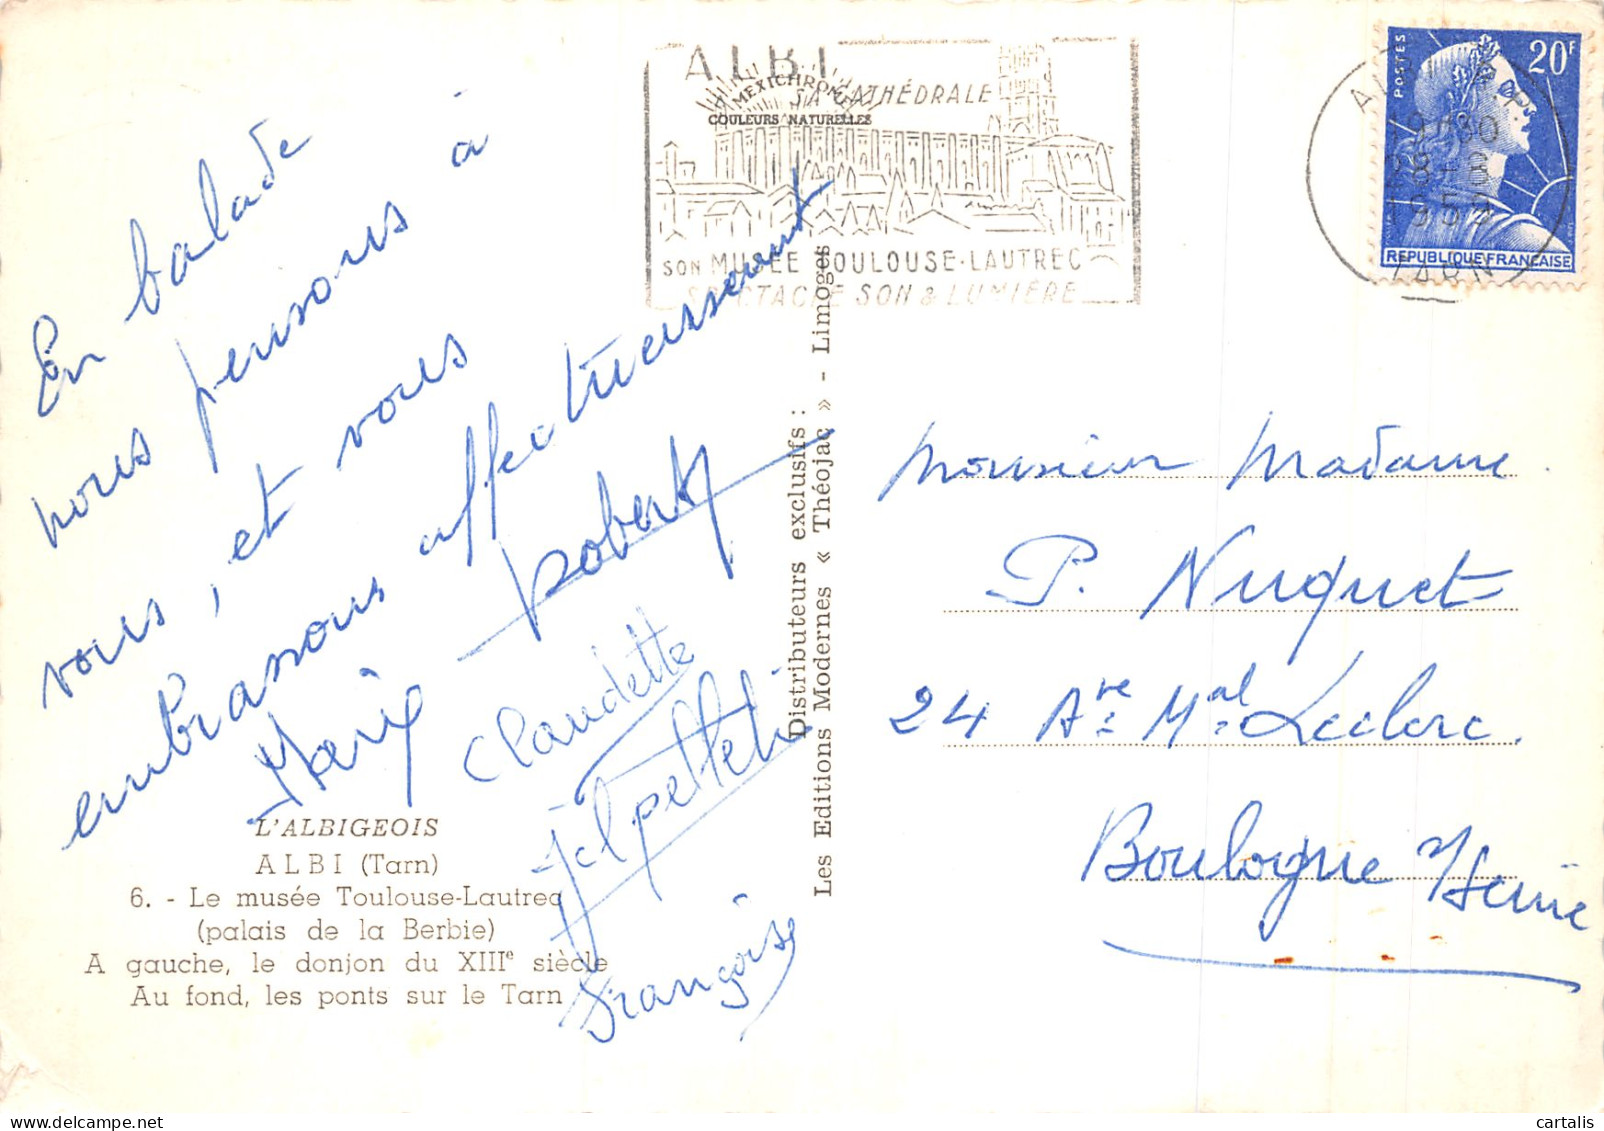 En balade
nous pensons à
vous, et vous
embrassons affectueusement
Robert
Claudette
Françoise
L'ALBIGEOIS
ALBI (Tarn)
6. - Le musée Toulouse-Lautrec
(palais de la Berbie)
A gauche, le donjon du XIIIe siècle
Au fond, les ponts sur le Tarn
Distributeurs exclusifs :
Les Editions Modernes « Théojac » - Limoges
MEXICHROME
COULEURS NATURELLES
ALBI
SA CATHÉDRALE
SON MUSÉE TOULOUSE-LAUTREC
SPECTACLE SON & LUMIÈRE
POSTES
20F
REPUBLIQUE FRANÇAISE
19H30
8-8
1959
TARN
Monsieur Madame
P. Nuquet
24 Ave Mal Leclerc.
Boulogne s/Seine
cartalis